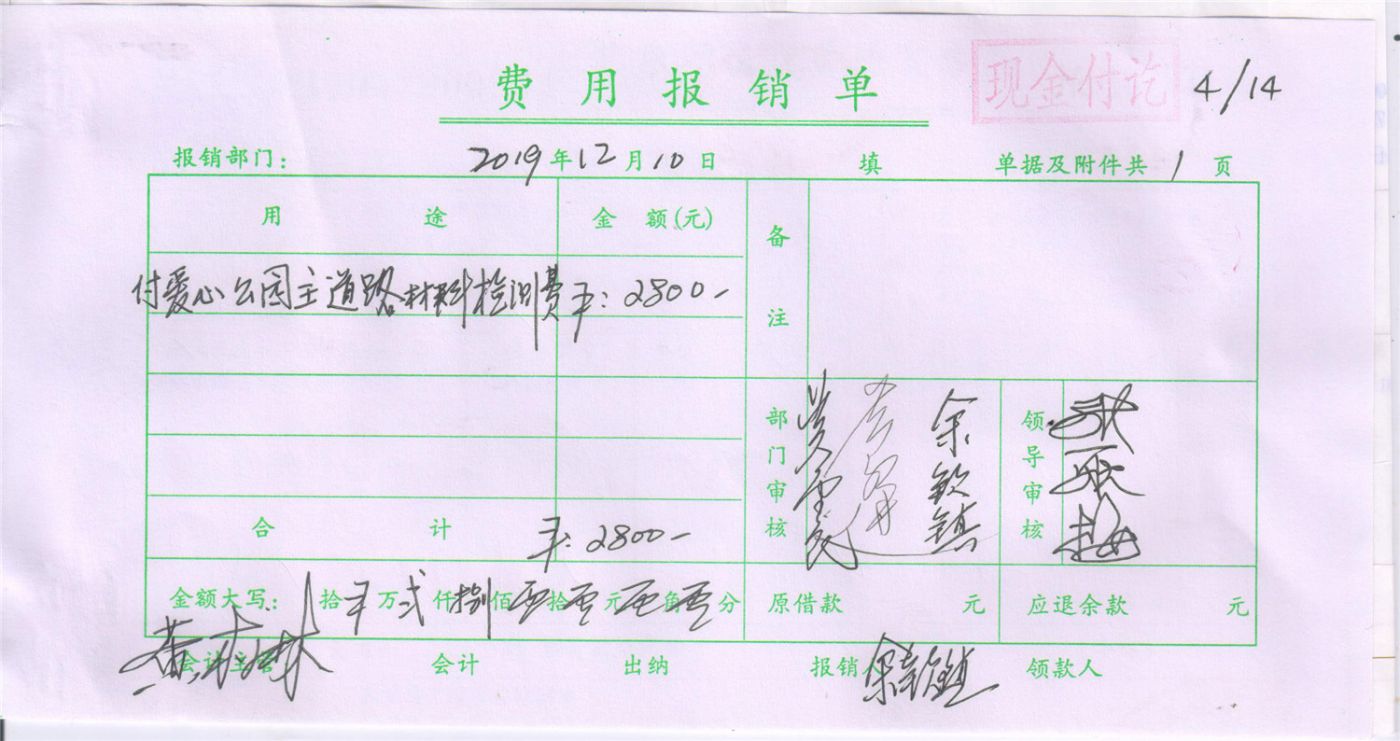 费用报销单 现金付讫 4/14
报销部门： 2019年12月10日 填 单据及附件共1页
用途 金额(元) 备注
付爱心公园主道路材料检测费 ¥：2800-
合计 ¥：2800-
部门审核 余钦镇 领导审核
金额大写： 拾¥万弍仟捌佰零拾零元零角零分 原借款 元 应退余款 元
会计主管 会计 出纳 报销人 余钦镇 领款人